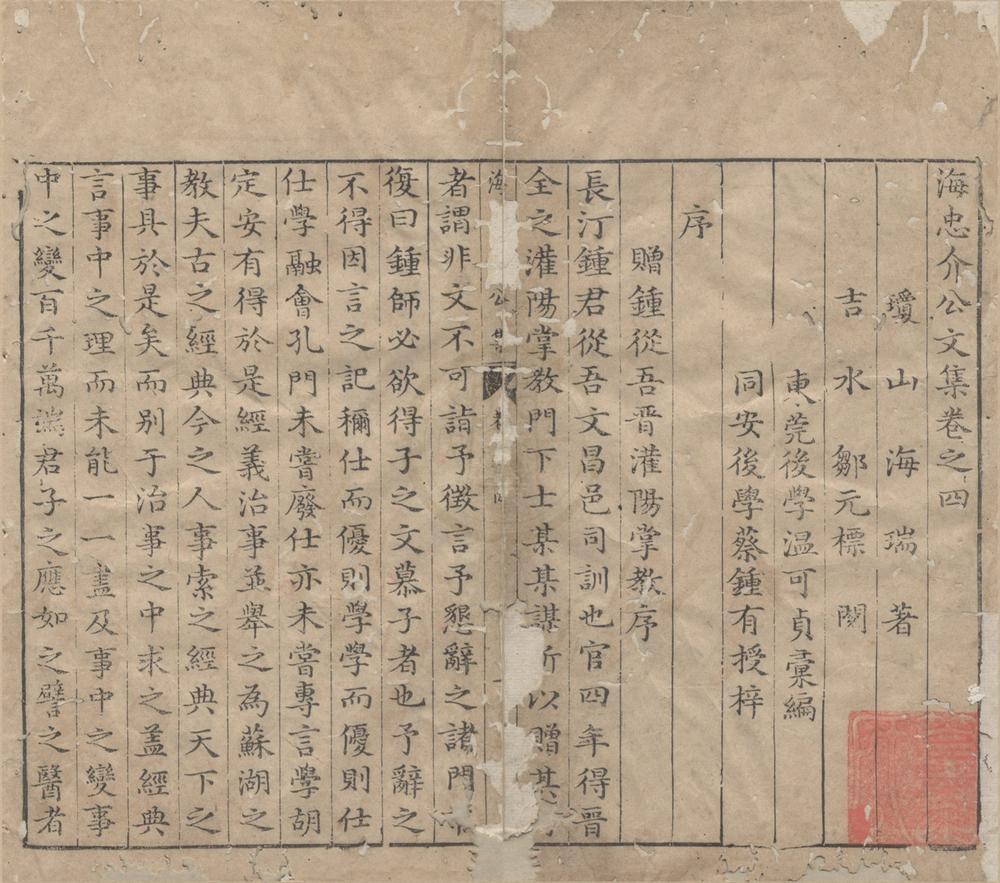 海忠介公文集卷之四
瓊山海瑞著
吉水鄒元標閱
東莞後學温可貞彙編
同安後學蔡鍾有授梓
序
贈鍾從吾晋灌陽掌教序
長汀鍾君從吾文昌邑司訓也官四年得晋
全之灌陽掌教門下士某某謀所以贈其
海公集卷四
者謂非文不可詣予徵言予懇辭之諸門
復曰鍾師必欲得子之文慕子者也予辭之
不得因言之記稱仕而優則學學而優則仕
仕學融會孔門未嘗廢仕亦未嘗專言學胡
定安有得於是經義治事並舉之為蘇湖之
教夫古之經典今之人事索之經典天下之
事具於是矣而别于治事之中求之盖經典
言事中之理而未能一一盡及事中之變事
中之變百千萬端君子之應如之譬之醫者